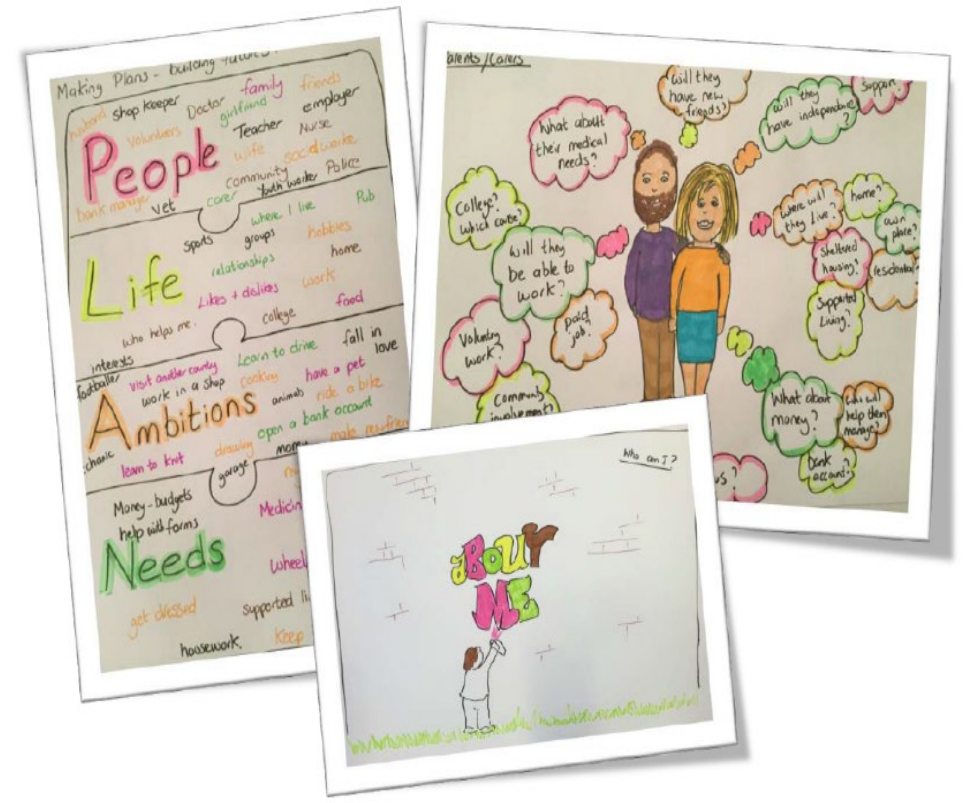 Making Plans - building futures
husband shop keeper Doctor family friends
volunteers girlfriend employer
People Teacher Nurse
wife social worker
community Police
bank manager vet carer Youth worker
sports where I live Pub
groups hobbies
Life relationships home
Likes + dislikes work
who helps me. college food
interests
footballer visit another country Learn to drive fall in love
work in a shop cooking have a pet
Ambitions animals ride a bike
open a bank account
learn to knit drawing money make new friends
garage
Money - budgets
help with forms Medicin
Needs wheel
get dressed supported li
housework. Keep
arents / Carers
What about their medical needs?
will they have new friends?
will they have independence?
Support?
College? Which course?
will they be able to work?
Voluntry work?
paid job?
Community involvement?
where will they live?
home?
own place?
sheltered housing?
residential
Supported Living?
What about money?
who will help them manage?
bank account?
us?
Who am I?
ABOUT
ME